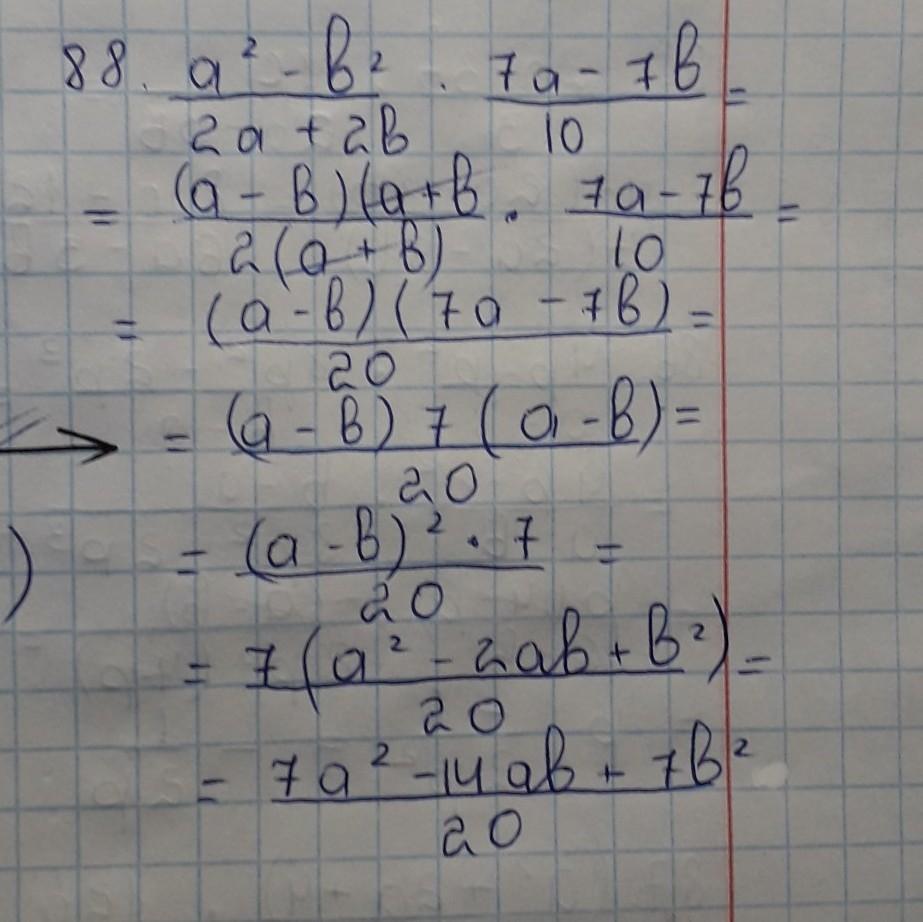 88. (a² - b²)/(2a + 2b) · (7a - 7b)/10 =
= ((a - b)(a + b)/(2(a + b)) · (7a - 7b)/10 =
= (a - b)(7a - 7b)/20 =
= (a - b) 7 (a - b)/20 =
) = (a - b)² · 7/20 =
= 7(a² - 2ab + b²)/20 =
= (7a² - 14ab + 7b²)/20